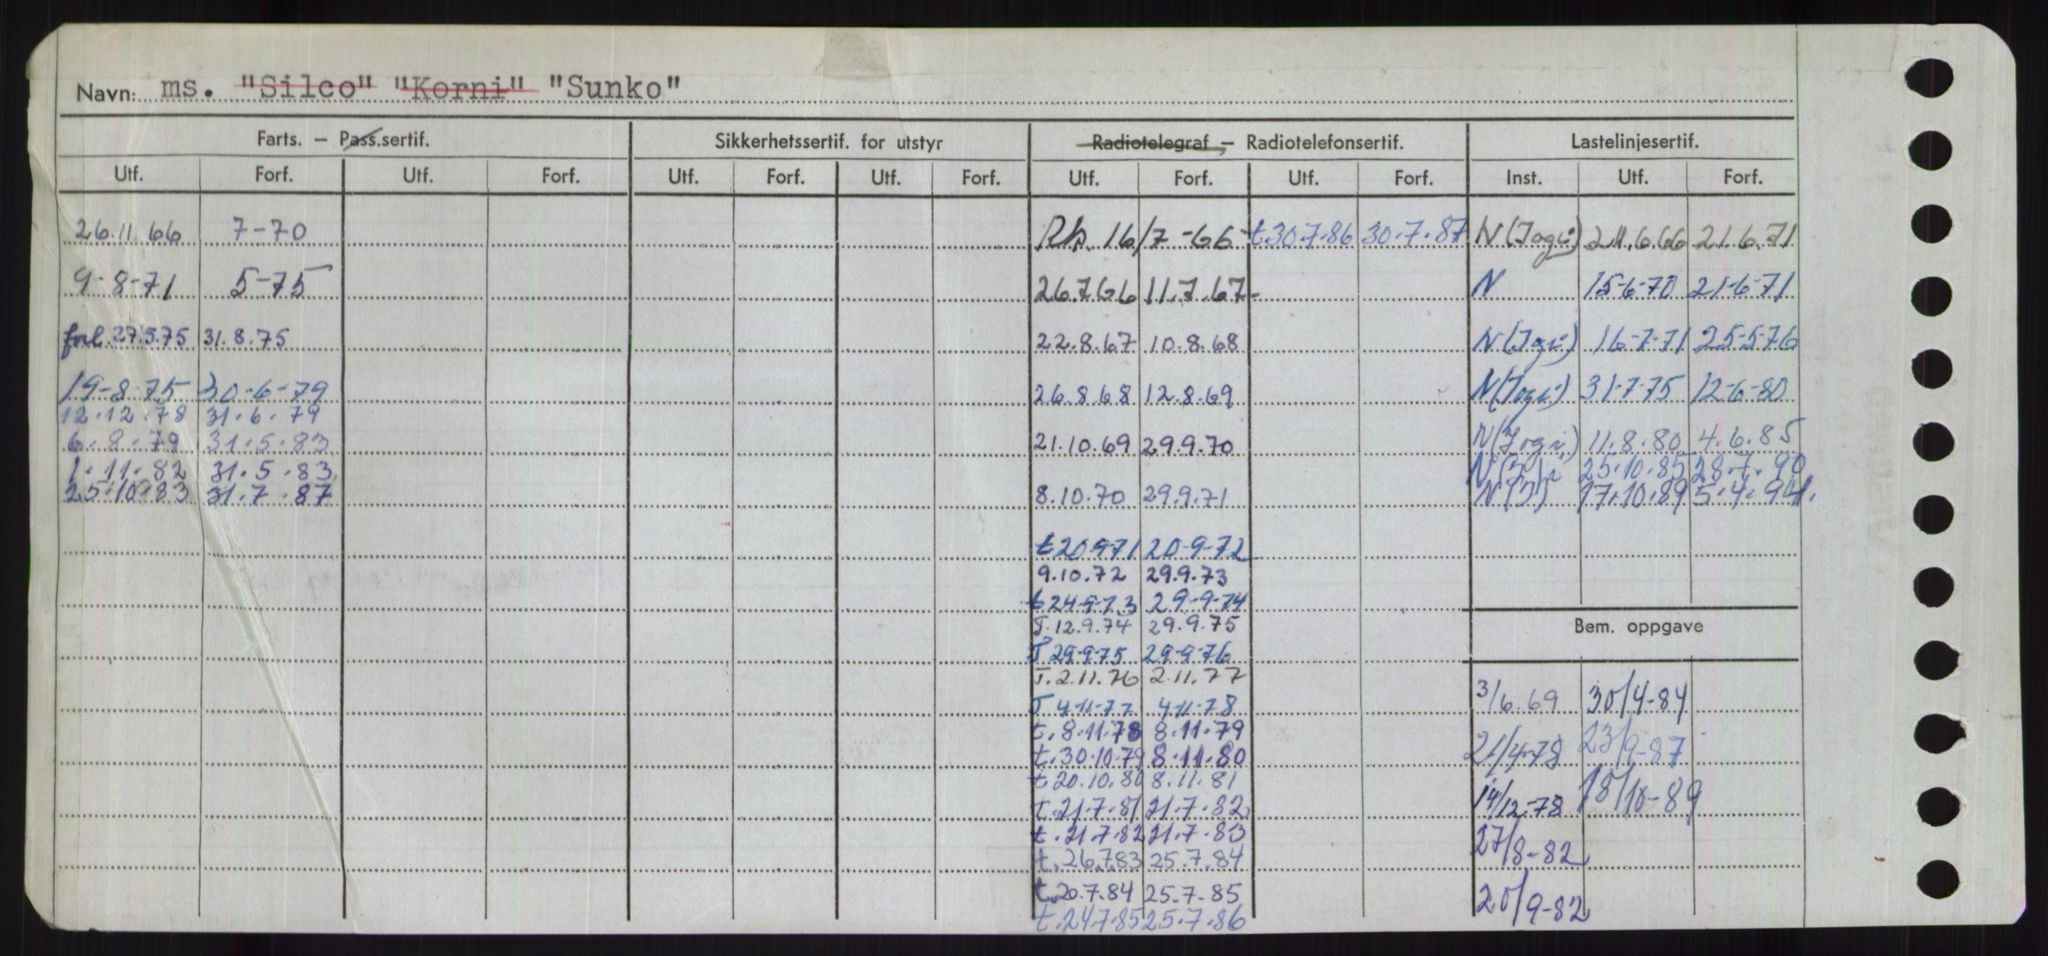 Navn: ms. "Silco" "Korni" "Sunko"
Farts. — Pass.sertif. Sikkerhetssertif. for utstyr Radiotelegraf — Radiotelefonsertif. Lastelinjesertif.
Utf. Forf. Utf. Forf. Utf. Forf. Utf. Forf. Utf. Forf. Utf. Forf. Inst. Utf. Forf.
26.11.66 7-70 16/7-66 t.30.7.86 30.7.87 21.6.66 21.6.71
9-8-71 5-75 26.7.66 11.7.67 N 15-6-70 21-6-71
forl. 27.5.75 31.8.75 22.8.67 10.8.68 16-7-71 25-5-76
19-8-75 30-6-79 26.8.68 12.8.69 31-7-75 12-6-80
12.12.78 31.6.79
6.8.79 31.5.83 21.10.69 29.9.70 11.8.80 4.6.85
1.11.82 31.5.83 25.10.85 28.7.90
25.10.83 31.7.87 8.10.70 29.9.71 17.10.89 5.4.94.
t 20-9-71 20-9-72
9.10.72 29.9.73
t 24-9-73 29-9-74
T. 12.9.74 29.9.75
Bem. oppgave
T 29-9-75 29-9-76
T. 2.11.76 2.11.77
3/6.69 30/4-84
T 4-11-77 4-11-78
t. 8.11.78 8.11.79
21/4-78 23/9-87
t. 30.10.79 8.11.80
t. 20.10.80 8.11.81
14/12-78 18/10-89
t. 21.7.81 21.7.82
t. 21.7.82 21.7.83
27/8-82
t. 26.7.83 25.7.84
t. 20.7.84 25.7.85
20/9-82
t. 24.7.85 25.7.86